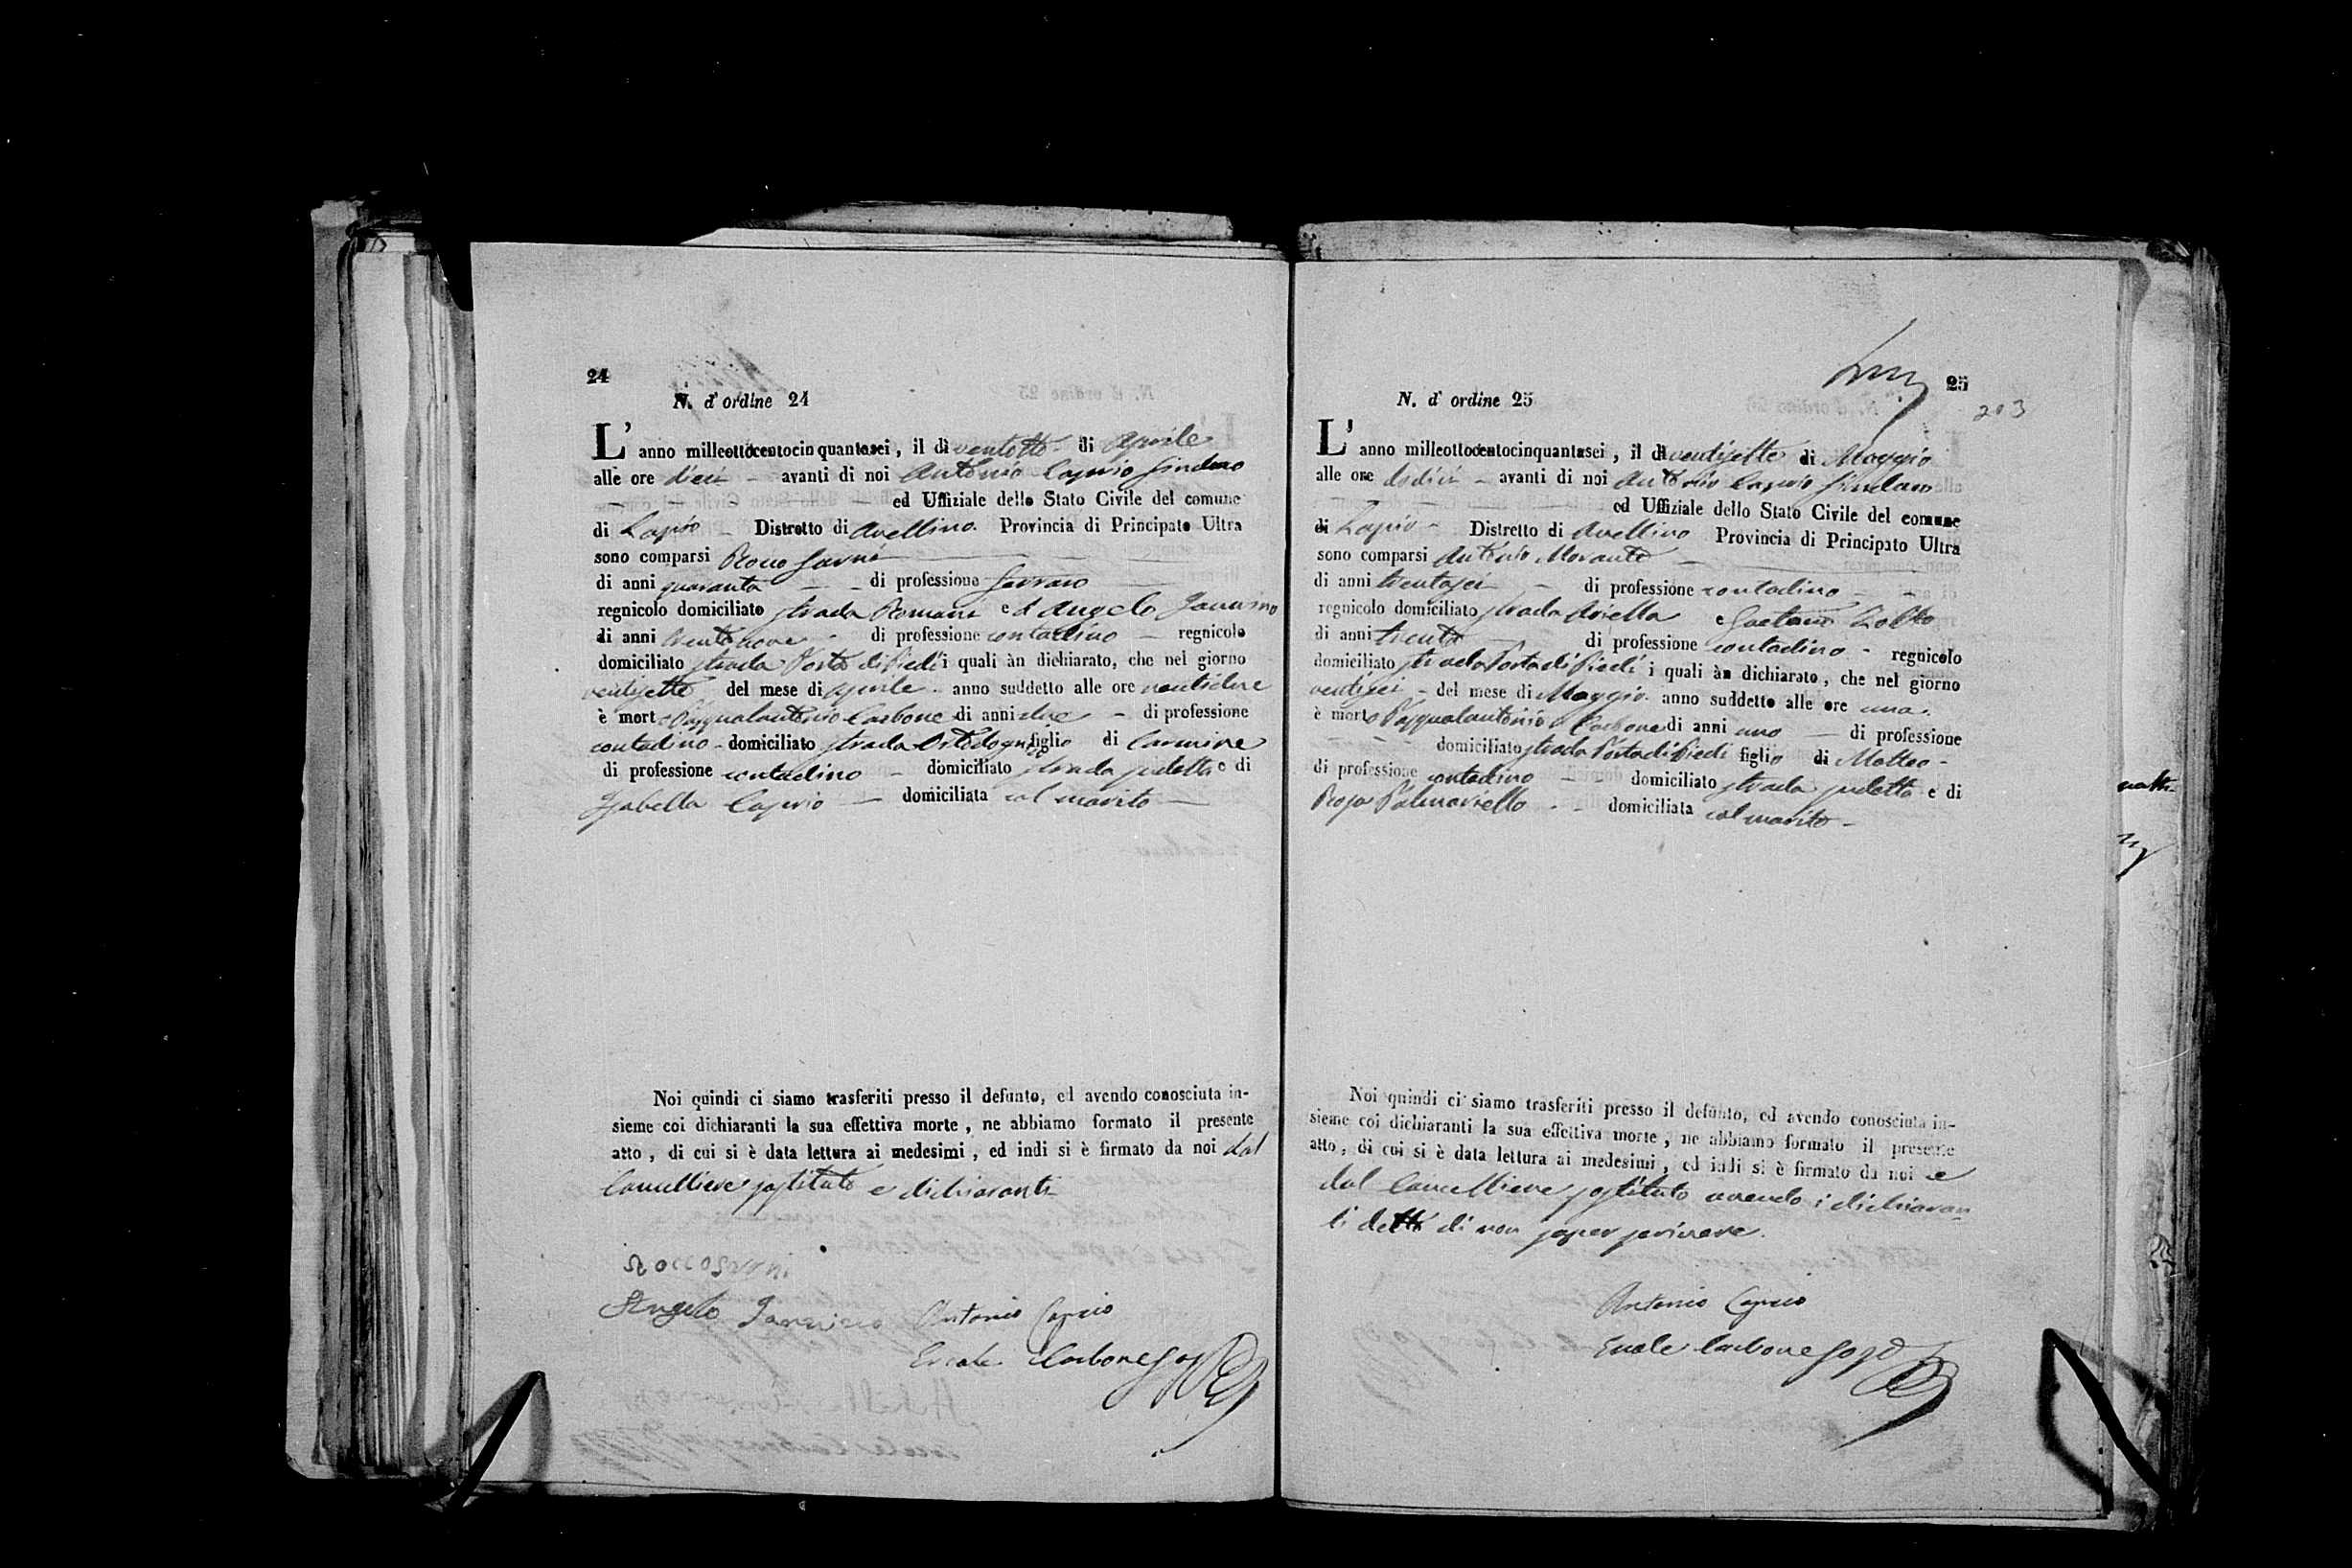 24
N. d' ordine 24
L' anno milleottocentocinquantasei, il dì ventotto di Aprile
alle ore dieci avanti di noi Antonio Caprio Sindaco
ed Uffiziale dello Stato Civile del comune
di Lapio Distretto di Avellino Provincia di Principato Ultra
sono comparsi Rocco
di anni quaranta di professione ferraro
regnicolo domiciliato strada e d'Angelo Iannino
di anni trentanove di professione contadino regnicolo
domiciliato strada Porta di Piedi i quali àn dichiarato, che nel giorno
ventisette del mese di Aprile anno suddetto alle ore ventidue
è morto Pasqualantonio Carbone di anni due di professione
contadino domiciliato strada figlio di Carmine
di professione contadino domiciliato strada sudetta e di
Isabella Caprio domiciliata col marito
Noi quindi ci siamo trasferiti presso il defunto, ed avendo conosciuta in-
sieme coi dichiaranti la sua effettiva morte, ne abbiamo formato il presente
atto, di cui si è data lettura ai medesimi, ed indi si è firmato da noi dal
Cancelliere sostituto e dichiaranti
Angelo Iannino Antonio Caprio
Ercole Carbone
25
203
N. d' ordine 25
L' anno milleottocentocinquantasei, il dì ventisette di Maggio
alle ore dodici avanti di noi Antonio Caprio Sindaco
ed Uffiziale dello Stato Civile del comune
di Lapio Distretto di Avellino Provincia di Principato Ultra
sono comparsi Antonio Morante
di anni trentasei di professione contadino
regnicolo domiciliato strada e Gaetano
di anni trenta di professione contadino regnicolo
domiciliato strada Porta di Piedi i quali àn dichiarato, che nel giorno
ventisei del mese di Maggio anno suddetto alle ore una
è morto Pasqualantonio Carbone di anni uno di professione
domiciliato strada Porta di Piedi figlio di Matteo
di professione contadino domiciliato strada sudetta e di
Rosa Palmariello domiciliata col marito
Noi quindi ci siamo trasferiti presso il defunto, ed avendo conosciuta in-
sieme coi dichiaranti la sua effettiva morte, ne abbiamo formato il presente
atto, di cui si è data lettura ai medesimi, ed indi si è firmato da noi e
dal Cancelliere sostituto avendo i dichiaran
ti detto di non saper scrivere.
Antonio Caprio
Ercole Carbone